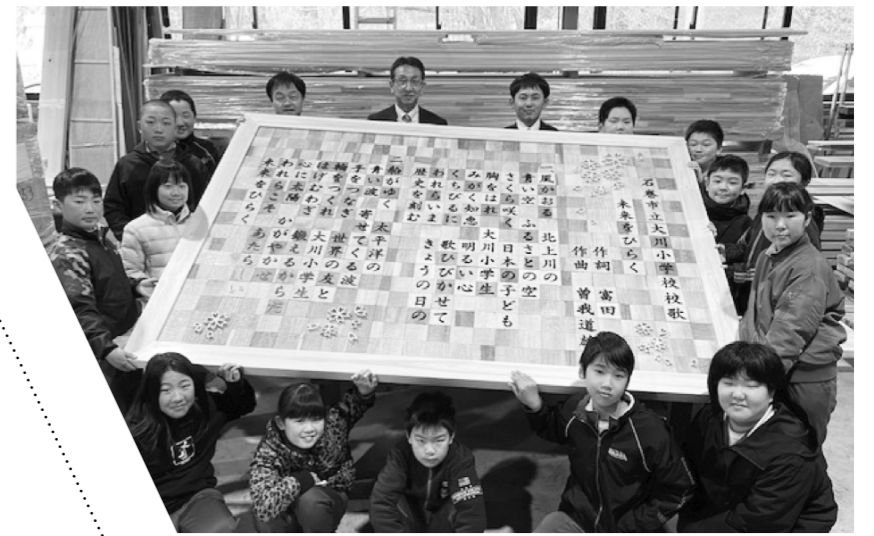 石巻市立大川小学校校歌
未来をひらく
作詞 富田
作曲 曽我道雄
一風かおる 北上川の
青い空 ふるさとの空
さくら咲く 日本の子ども
胸をはれ 大川小学生
みがく知恵 明るい心
くちびるに 歌ひびかせて
われらいま きょうの日の
歴史を刻む
二船がゆく 太平洋の
青い波 寄せてくる波
手をつなぎ 世界の友と
輪をつくれ 大川小学生
はげむわざ 鍛えるからだ
心に太陽 かがやかせ
われらこそ あたらしい
未来をひらく